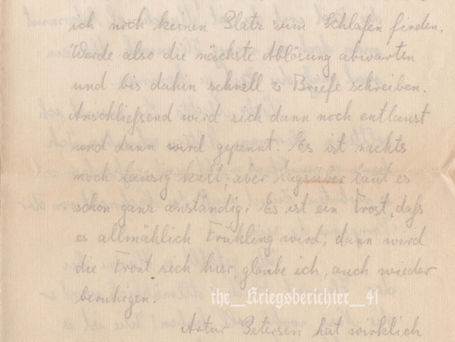 ich noch keinen Platz zum Schlafen finden.
Werde also die nächste Ablösung abwarten
und bis dahin schnell 2 Briefe schreiben.
Anschließend wird sich dann noch entlaust
und dann wird gepennt. Es ist nachts
noch lausig kalt, aber tagsüber taut es
schon ganz anständig. Es ist ein Trost, daß
es allmählich Frühling wird, dann wird
die Front sich hier, glaube ich, auch wieder
beruhigen.
the__Kriegsberichter__41
Artur Petersen hat wirklich